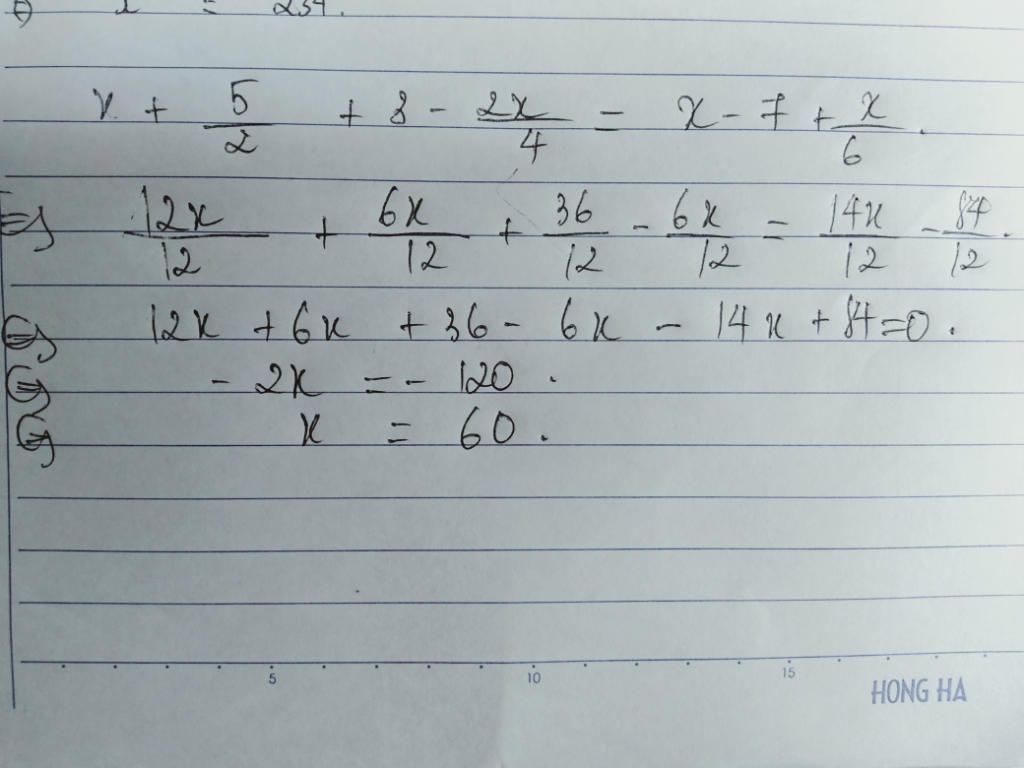 x = 234.
x + 5/2 + 3 - 2x/4 = x - 7 + x/6.
=> 12x/12 + 6x/12 + 36/12 - 6x/12 = 14x/12 - 84/12.
12x + 6x + 36 - 6x - 14x + 84 = 0.
- 2x = - 120.
x = 60.
5 10 15
HONG HA